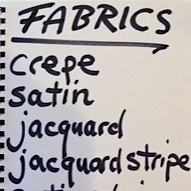 FABRICS
crepe
satin
jacquard
jacquard stripe